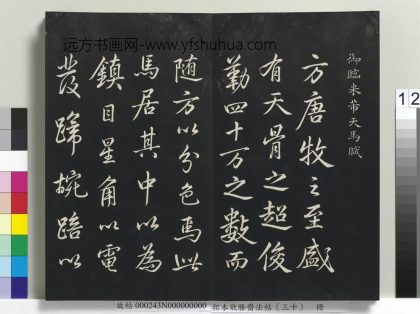 远方书画网-www.yfshuhua.com
御臨米芾天馬賦
方唐牧之至盛
有天骨之超俊
勒四十万之數而
随方以分色焉此
馬居其中以為
鎮目星角以電
發蹄椀踣以
12
故帖 000243N000000000 拓本敬勝齋法帖（三十） 冊